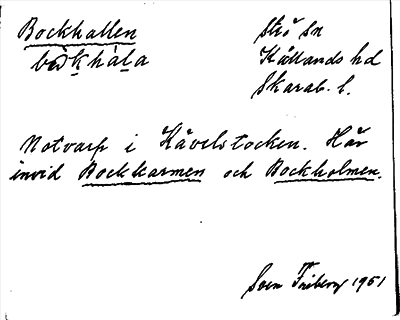 Bockhallen
Strö sn
Kållands hd
Skarab. l.
Notvarp i Hävelstocken. Här
invid Bockkarmen och Bockholmen.
Sven Friberg 1951